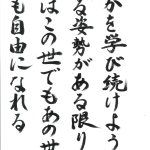 かを学び続けよう
る姿勢がある限り
はこの世でもあの世
も自由になれる